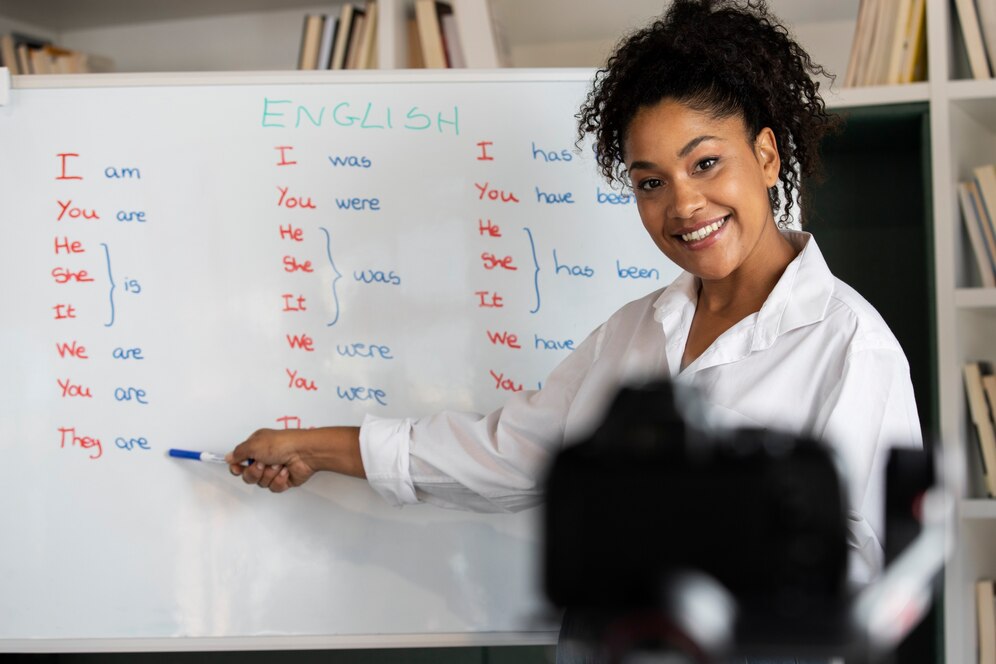 ENGLISH
I am
You are
He
She
It
is
We are
You are
They are
I was
You were
He
She
It
was
We were
You were
I has
You have been
He
She
It
has been
We have
You